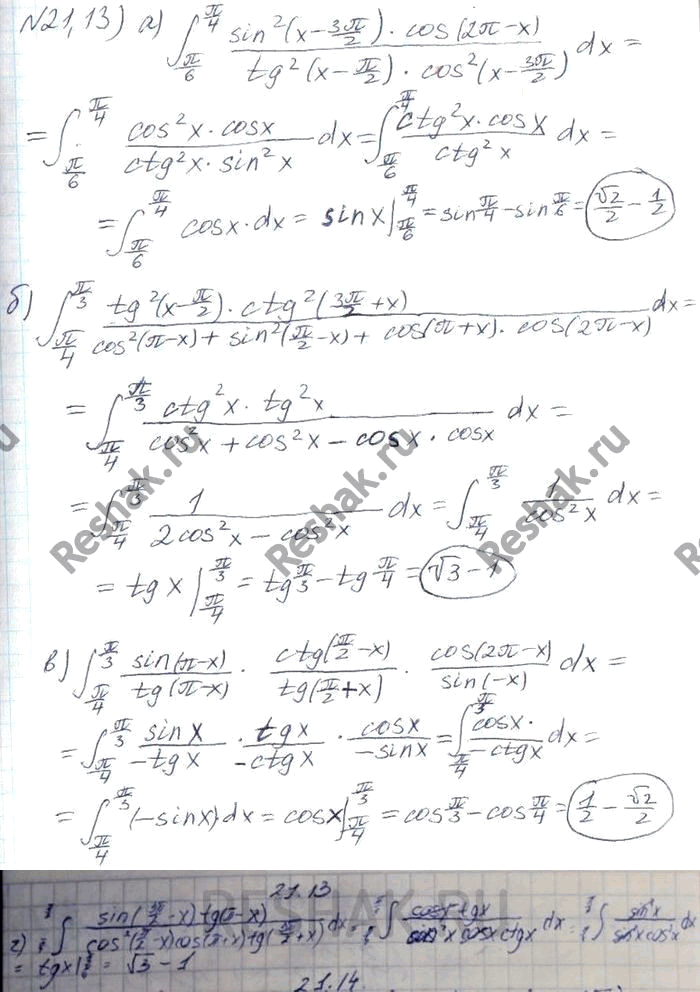 №21,13) а) ∫_{π/6}^{π/4} (sin²(x-3π/2)·cos(2π-x))/(tg²(x-π/2)·cos²(x-3π/2)) dx =
= ∫_{π/6}^{π/4} (cos²x·cosx)/(ctg²x·sin²x) dx = ∫_{π/6}^{π/4} (ctg²x·cosx)/(ctg²x) dx =
= ∫_{π/6}^{π/4} cosx·dx = sinx|_{π/6}^{π/4} = sin π/4 - sin π/6 = √2/2 - 1/2
б) ∫_{π/4}^{π/3} (tg²(x-π/2)·ctg²(3π/2+x))/(cos²(π-x)+sin²(π/2-x)+cos(π+x)·cos(2π-x)) dx =
= ∫_{π/4}^{π/3} (ctg²x·tg²x)/(cos²x+cos²x-cosx·cosx) dx =
= ∫_{π/4}^{π/3} 1/(2cos²x-cos²x) dx = ∫_{π/4}^{π/3} 1/(cos²x) dx =
= tgx|_{π/4}^{π/3} = tg π/3 - tg π/4 = √3 - 1
в) ∫_{π/4}^{π/3} sin(π-x)/tg(π-x) · ctg(π/2-x)/tg(π/2+x) · cos(2π-x)/sin(-x) dx =
= ∫_{π/4}^{π/3} sinx/(-tgx) · tgx/(-ctgx) · cosx/(-sinx) = ∫_{π/4}^{π/3} (cosx·)/(-ctgx) dx =
= ∫_{π/4}^{π/3} (-sinx)dx = cosx|_{π/4}^{π/3} = cos π/3 - cos π/4 = 1/2 - √2/2
Reshak.ru
Reshak.ru
Reshak.ru
RESHAK.RU
21.13
= tgx| = √3 - 1
21.14.